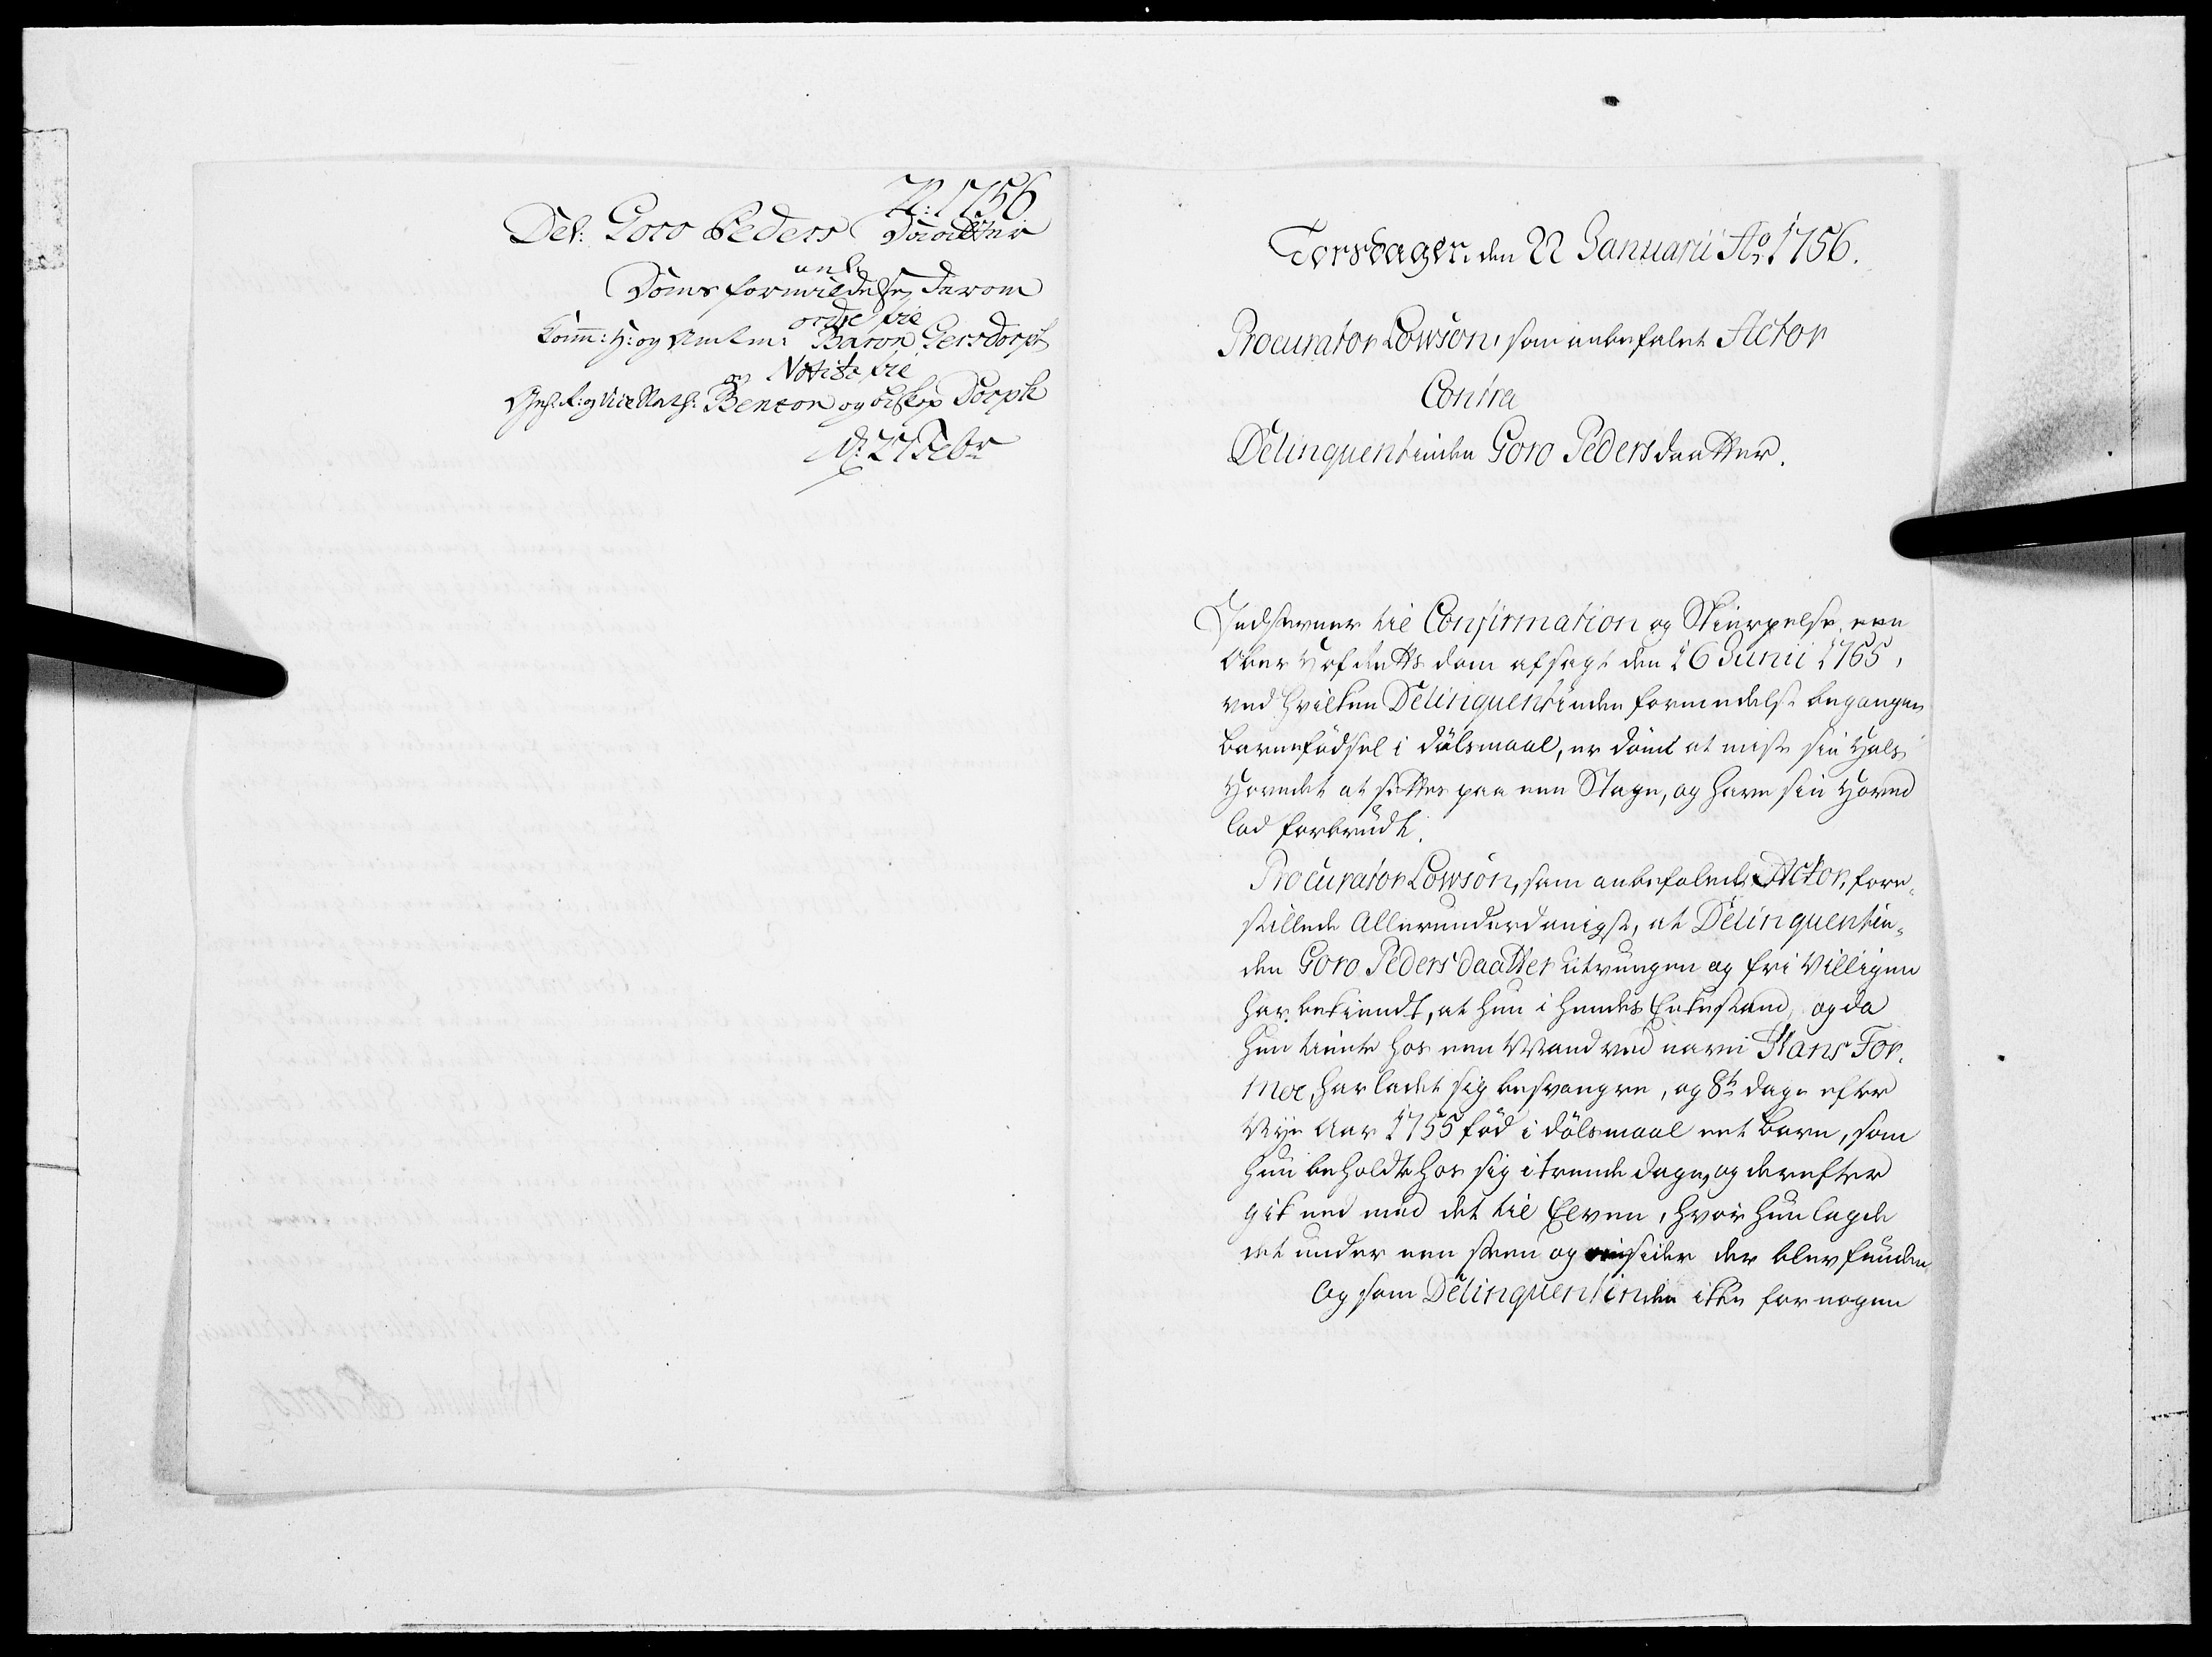 N: 1756
Del: Goro Peders Daatter
anl.
Doms formildelse, derom
ordre til
Comm: H: og Amtm: Baron Gersdorph
Notitz til
og Vice Stath: Benzon og Biskop Dorph
d: 27 Febr
Torsdagen den 22 Januarii Ao 1756.
Procurator Lowson, som anbefalet Actor
Contra
Delinquentinden Goro Pedersdaatter.
Indstevner til Confirmation og Skierpelse, een
Ober Hof Retts dom afsagt den 16 Junii 1765,
ved hvilken Delinquentinden formedelst begangen
barnefødsel i dølsmaal, er dømt at miste sin Hals
Hovedet at settes paa een Stage, og have sin Hoved
lod forbrudt.
Procurator Lowson, som anbefalede Actor, fore-
stillede Allerunderdanigst, at Delinquentin-
den Goro Pedersdaatter utvungen og fri Villigen
har bekiendt, at hun i hendes Enkestand, og da
hun tiente hos een Mand ved navn Hans For-
moe, har ladet sig besvangre, og 8te dage efter
Nye Aar 1755 fød i dølsmaal eet barn, som
hun beholdte hos sig i trende dage, og derefter
gik ned med det til Elven, hvor hun lagde
det under een steen og siden der blev funden.
Og som Delinquentinden ikke for nogen